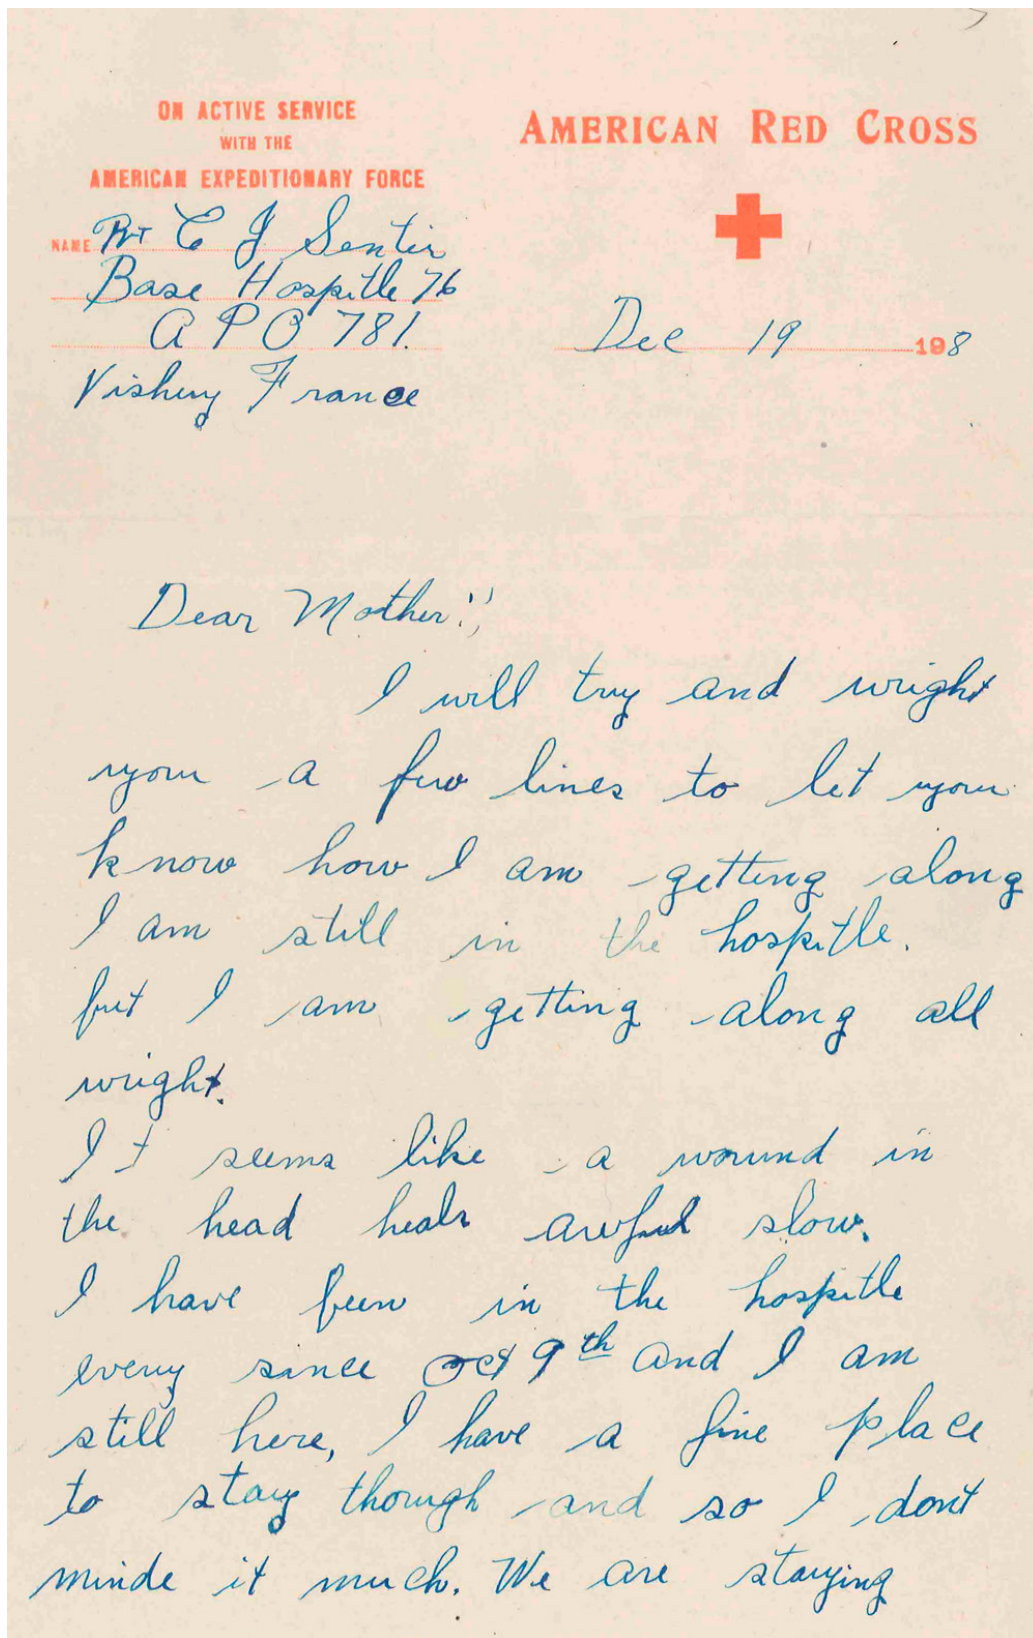 ON ACTIVE SERVICE
WITH THE
AMERICAN EXPEDITIONARY FORCE
AMERICAN RED CROSS
NAME Pvt C J Senter
Base Hospitle 76
A P O 781.
Vishey France
Dec 19 1918
Dear Mother:,
I will try and wright
you a few lines to let you
know how I am getting along
I am still in the hospitle.
but I am getting along all
wright.
It seems like a wound in
the head heals awful slow.
I have been in the hospitle
every since Oct 9th and I am
still here, I have a fine place
to stay though and so I dont
minde it much. We are staying